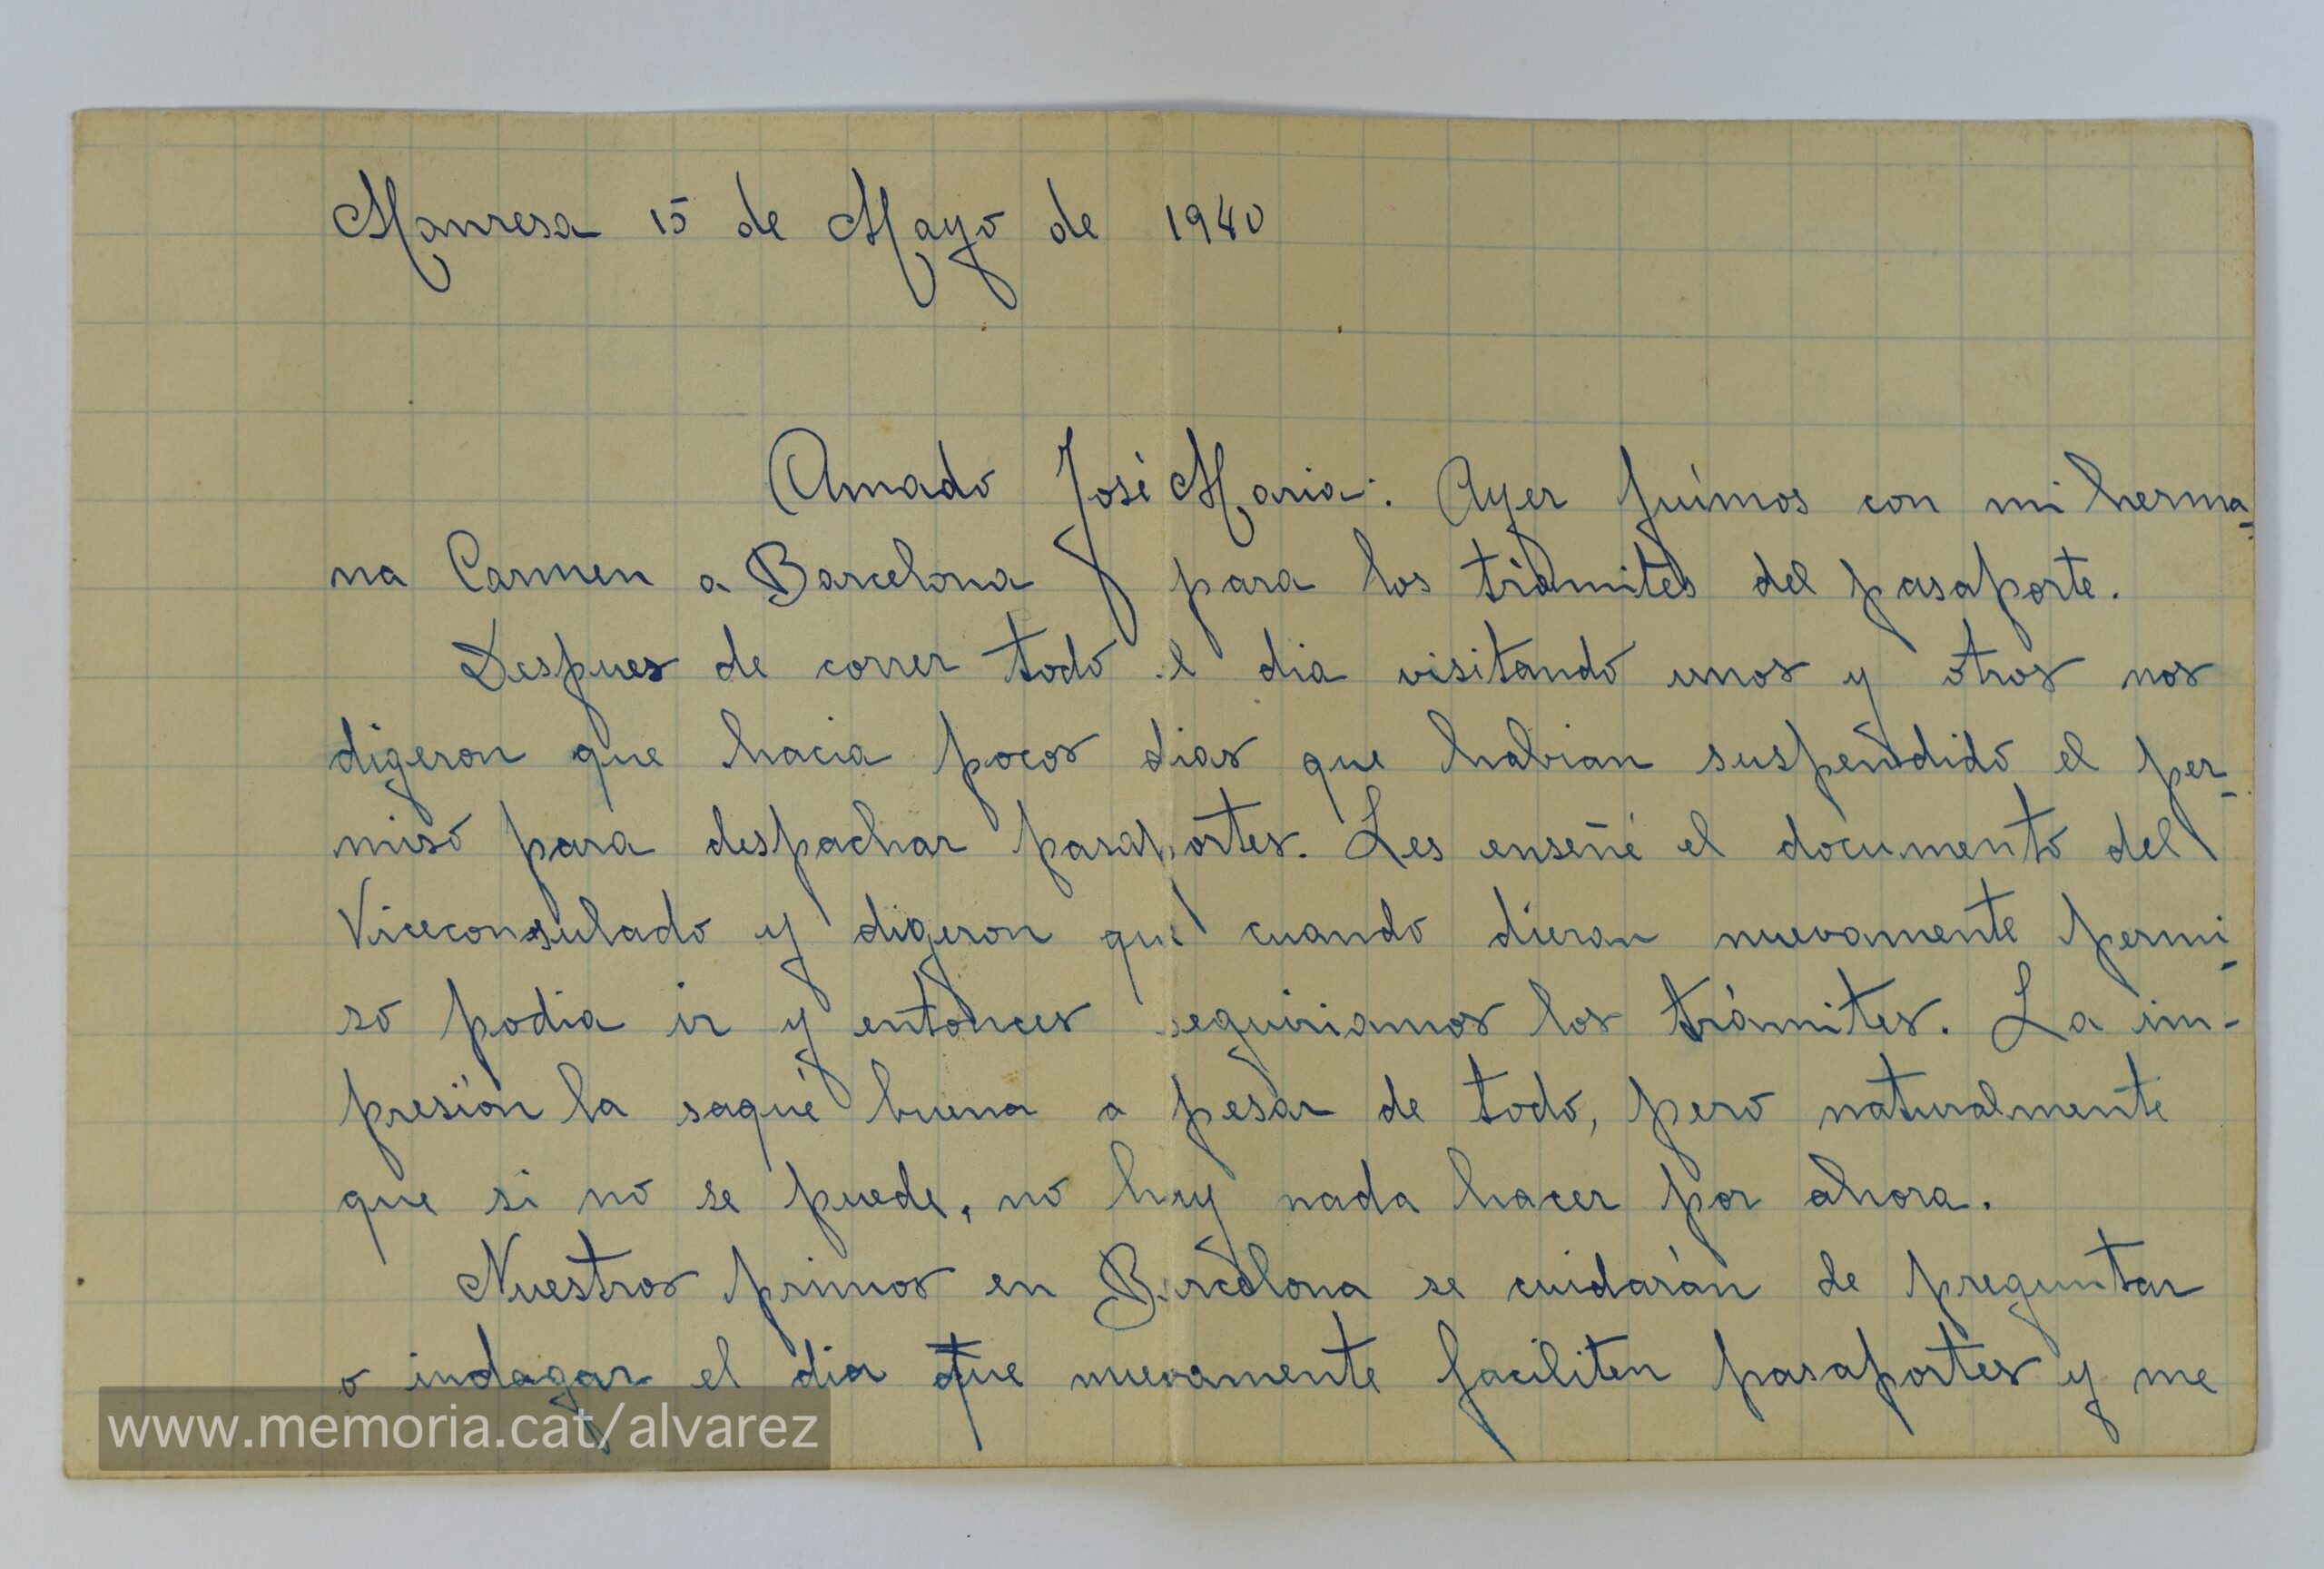 Manresa 15 de Mayo de 1940
Amado José Maria: Ayer fuímos con mi herma=
na Carmen a Barcelona para los trámites del pasaporte.
Despues de correr todo el dia visitando unos y otros nos
digeron que hacia pocos dias que habian suspendido el per-
miso para despachar pasaportes. Les enseñé el documento del
Viceconsulado y digeron que cuando dieran nuevamente permi-
so podia ir y entonces seguiriamos los trámites. La im-
presión la saqué buena a pesar de todo, pero naturalmente
que si no se puede, no hay nada hacer por ahora.
Nuestros primos en Barcelona se cuidarán de preguntar
o indagar el dia que nuevamente faciliten pasaportes y me
www.memoria.cat/alvarez